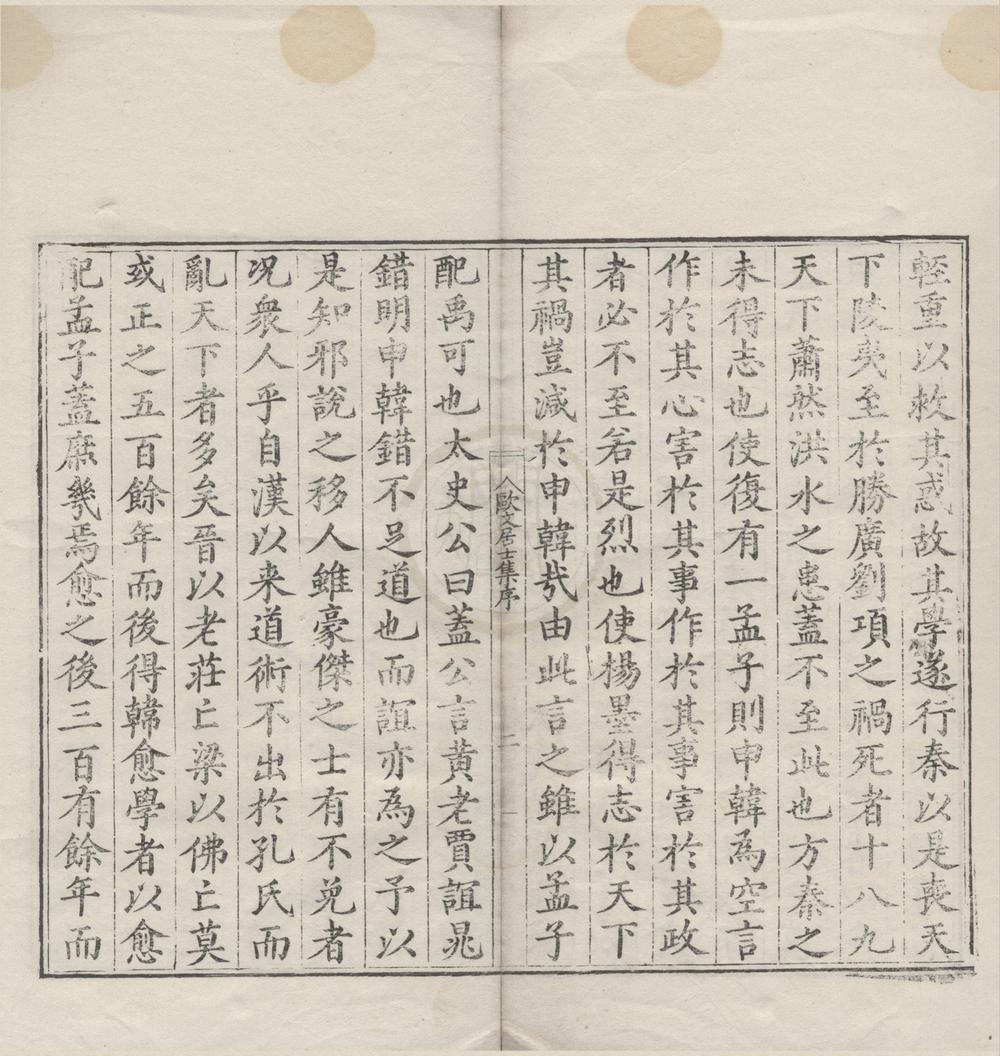 輕重以救其惑故其學遂行秦以是喪天
下陵夷至於勝廣劉項之禍死者十八九
天下蕭然洪水之患蓋不至此也方秦之
未得志也使復有一孟子則申韓為空言
作於其心害於其事作於其事害於其政
者必不至若是烈也使楊墨得志於天下
其禍豈減於申韓哉由此言之雖以孟子
歐文居士集序
二
配禹可也太史公曰蓋公言黄老賈誼晁
錯明申韓錯不足道也而誼亦為之予以
是知邪說之移人雖豪傑之士有不免者
况衆人乎自漢以来道術不出於孔氏而
亂天下者多矣晉以老莊亡梁以佛亡莫
或正之五百餘年而後得韓愈學者以愈
配孟子蓋庶幾焉愈之後三百有餘年而